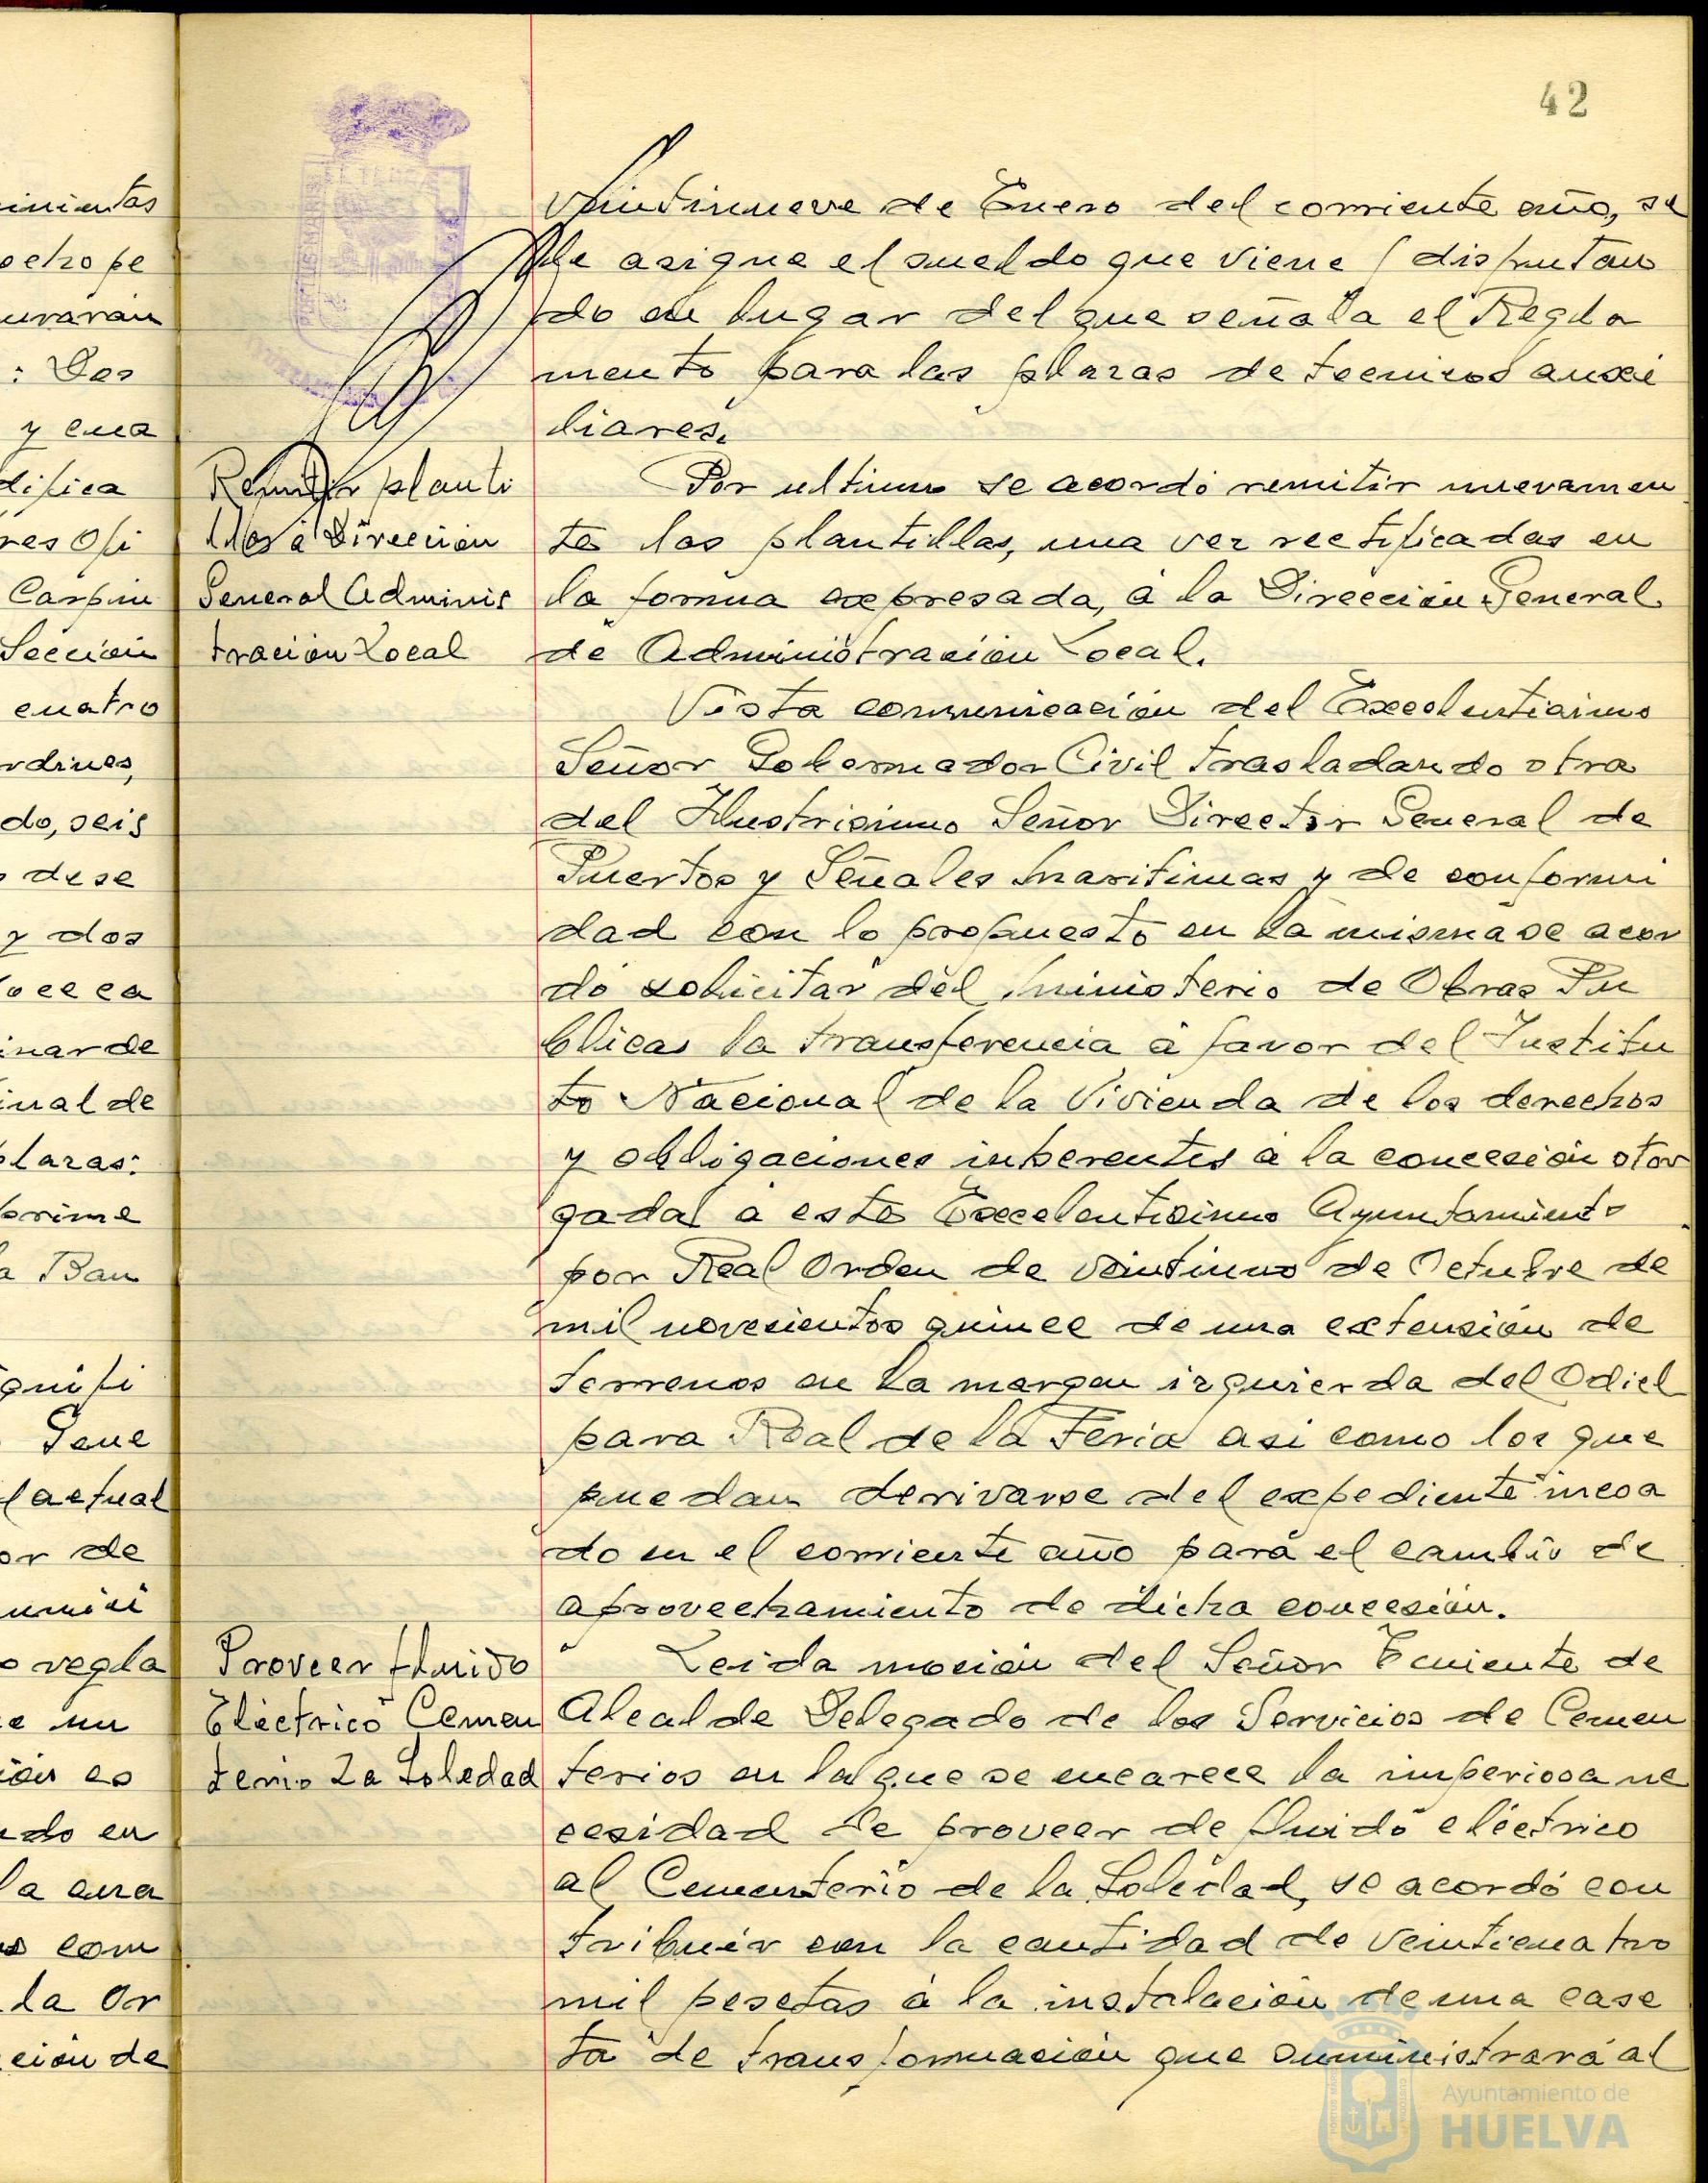 42
veintinueve de Enero del corriente año, se
le asigne el sueldo que viene disfrutan
do en lugar del que señala el Regla
mento para las plazas de tecnicos auxi
liares.
Remitir planti
llas á Dirección
General Adminis
tración Local
Por ultimo se acordó remitir nuevamen
te las plantillas, una vez rectificadas en
la forma expresada, á la Dirección General
de Administración Local.
Vista comunicación del Excelentisimo
Señor Gobernador Civil trasladando otra
del Ilustrisimo Señor Director General de
Puertos y Señales Maritimas y de conformi
dad con lo propuesto en la misma se acor
dó solicitar del Ministerio de Obras Pu
blicas la transferencia á favor del Institu
to Nacional de la Vivienda de los derechos
y obligaciones inherentes á la concesión otor
gada á este Excelentisimo Ayuntamiento
por Real Orden de veintiuno de Octubre de
mil novecientos quince de una extensión de
terrenos en la margen izquierda del Odiel
para Real de la Feria asi como los que
puedan derivarse del expediente incoa
do en el corriente año para el cambio de
aprovechamiento de dicha concesión.
Proveer fluido
Eléctrico Cemen
terio La Soledad
Leida moción del Señor Teniente de
Alcalde Delegado de los Servicios de Cemen
terios en la que se encarece la imperiosa ne
cesidad de proveer de fluido eléctrico
al Cementerio de la Soledad, se acordó con
tribuir con la cantidad de veinticuatro
mil pesetas á la instalación de una case
ta de transformación que suministrará al
Ayuntamiento de
HUELVA
inientas
ocho pe
uraran
: Des
y cua
difica
res Ofi
Carpin
Sección
cuatro
rdines,
do, seis
dese
y dos
inar de
inal de
plazas:
prime
a Ban
quifi
Gene
l actual
or de
o regla
e un
ión es
do en
la cura
com
la Or
ción de